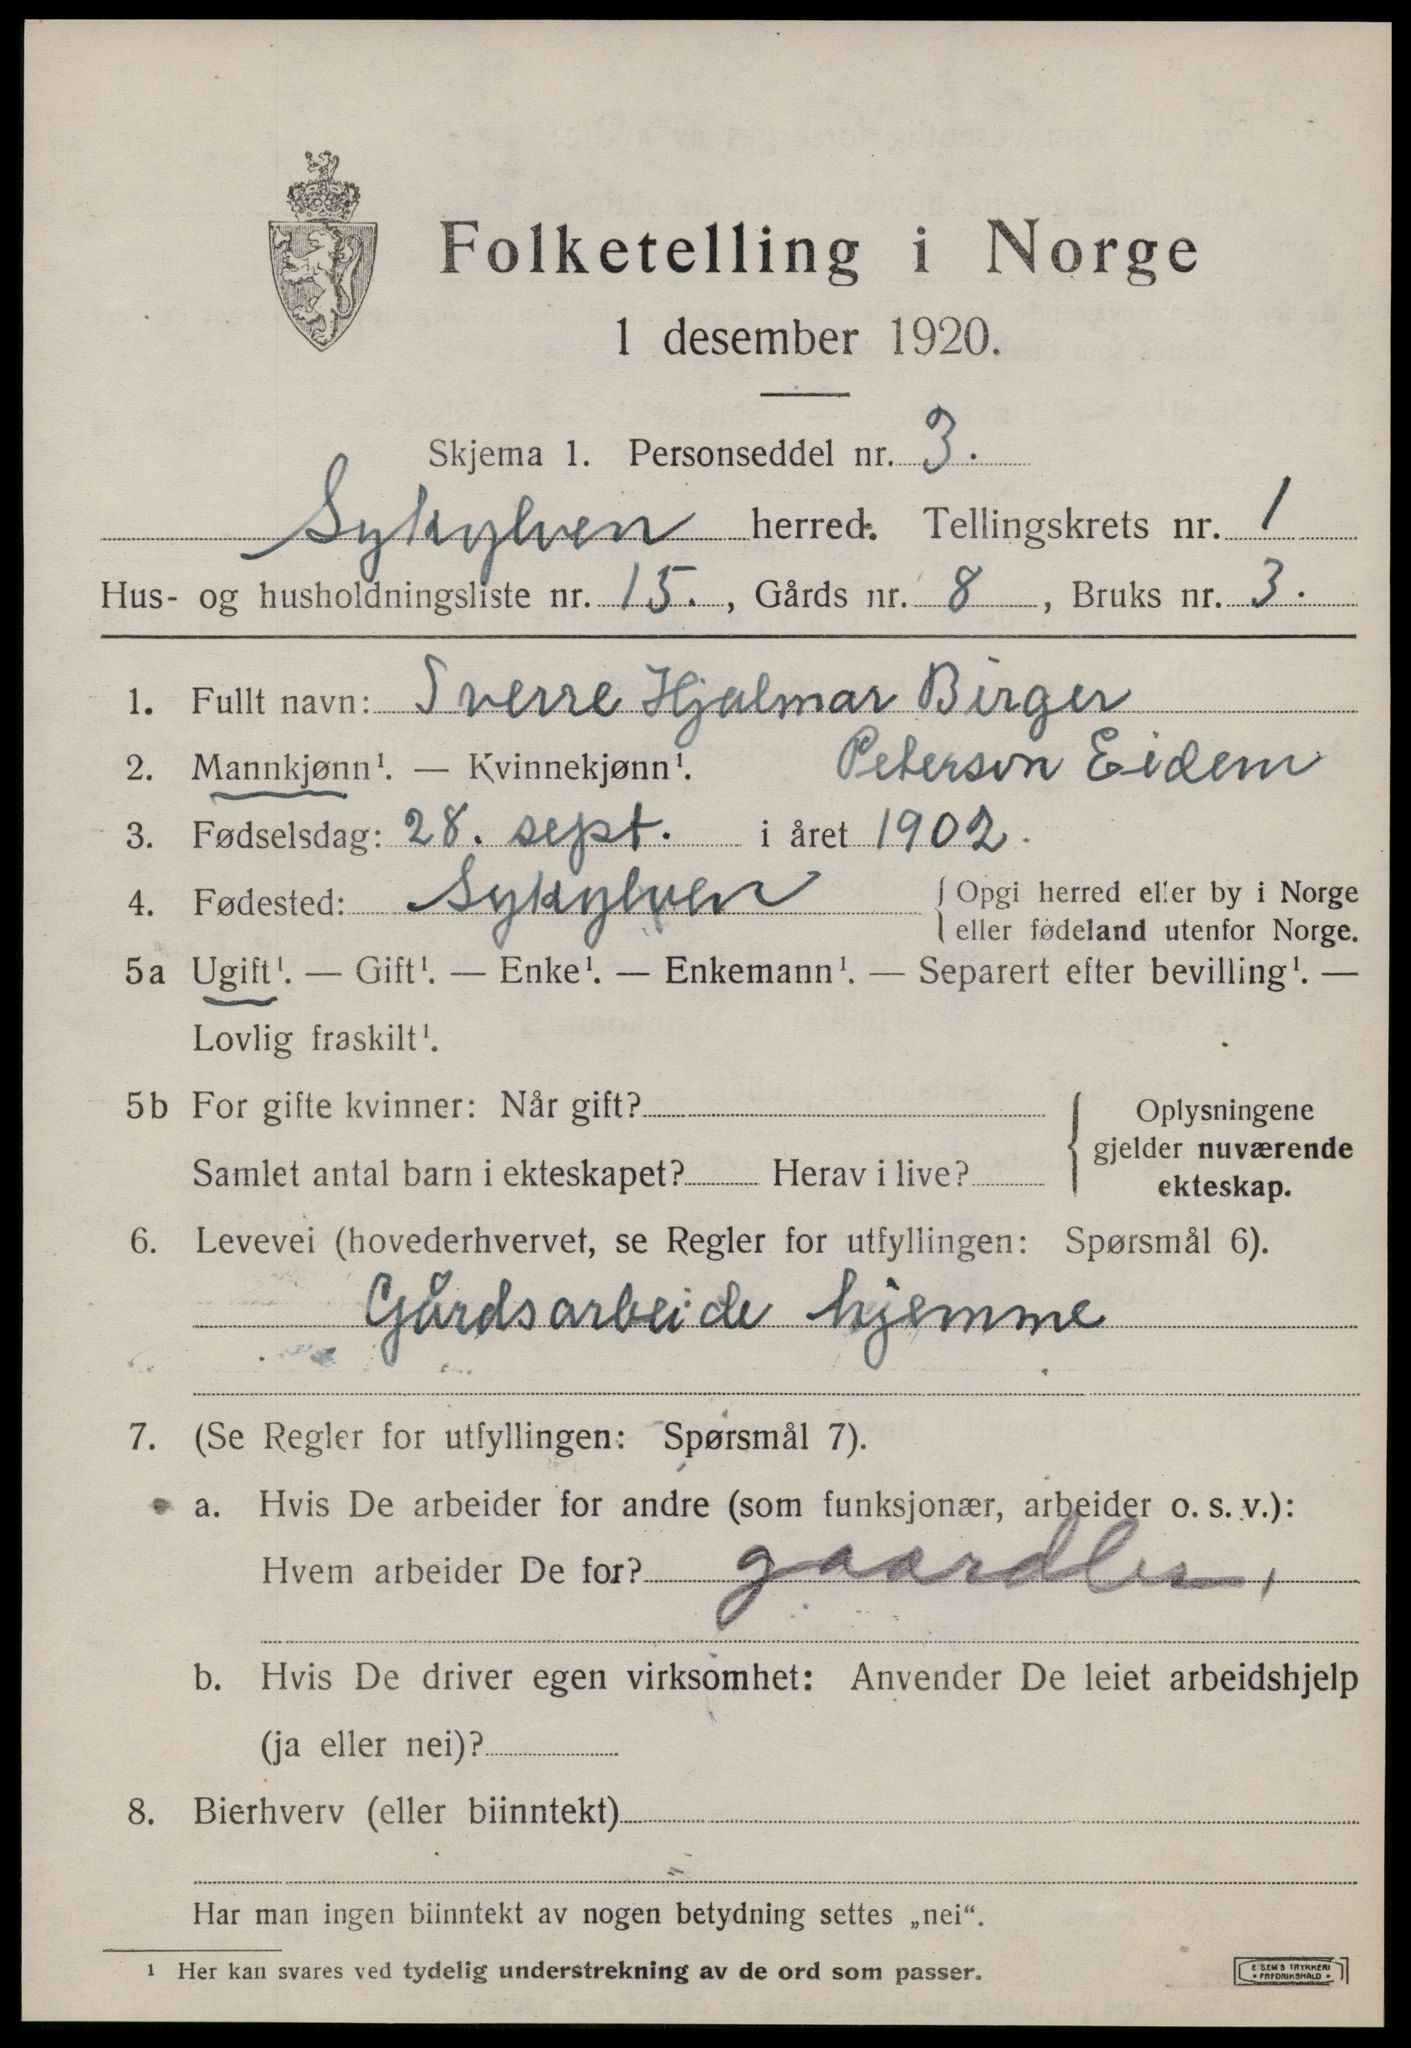 Folketelling i Norge
1 desember 1920.
Skjema 1. Personseddel nr. 3.
Sykylven herred. Tellingskrets nr. 1
Hus- og husholdningsliste nr. 15., Gårds nr. 8, Bruks nr. 3.
1. Fullt navn: Sverre Hjalmar Birger
2. Mannkjønn¹. — Kvinnekjønn¹. Peterson Eidem
3. Fødselsdag: 28. sept. i året 1902.
4. Fødested: Sykylven { Opgi herred eller by i Norge
eller fødeland utenfor Norge.
5a Ugift¹. — Gift¹. — Enke¹. — Enkemann¹. — Separert efter bevilling¹. —
Lovlig fraskilt¹.
5b For gifte kvinner: Når gift? { Oplysningene
gjelder nuværende
Samlet antal barn i ekteskapet? Herav i live? ekteskap.
6. Levevei (hovederhvervet, se Regler for utfyllingen: Spørsmål 6).
Gårdsarbeide hjemme
7. (Se Regler for utfyllingen: Spørsmål 7).
a. Hvis De arbeider for andre (som funksjonær, arbeider o. s. v.):
Hvem arbeider De for?
b. Hvis De driver egen virksomhet: Anvender De leiet arbeidshjelp
(ja eller nei)?
8. Bierhverv (eller biinntekt)
Har man ingen biinntekt av nogen betydning settes „nei“.
¹ Her kan svares ved tydelig understrekning av de ord som passer.
E. SEM'S TRYKKERI
FREDRIKSHALD